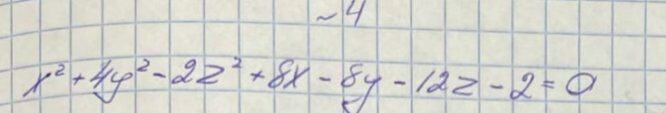 ~4
x² + 4y² - 2z² + 8x - 8y - 12z - 2 = 0